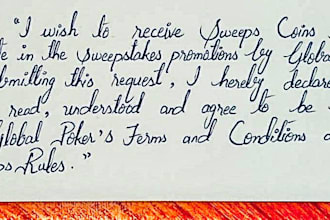 "I wish to receive Sweeps Coins
te in the sweepstakes promotions by Global
bmitting this request, I hereby declare
read, understood and agree to be
Global Poker's Terms and Conditions a
ps Rules."